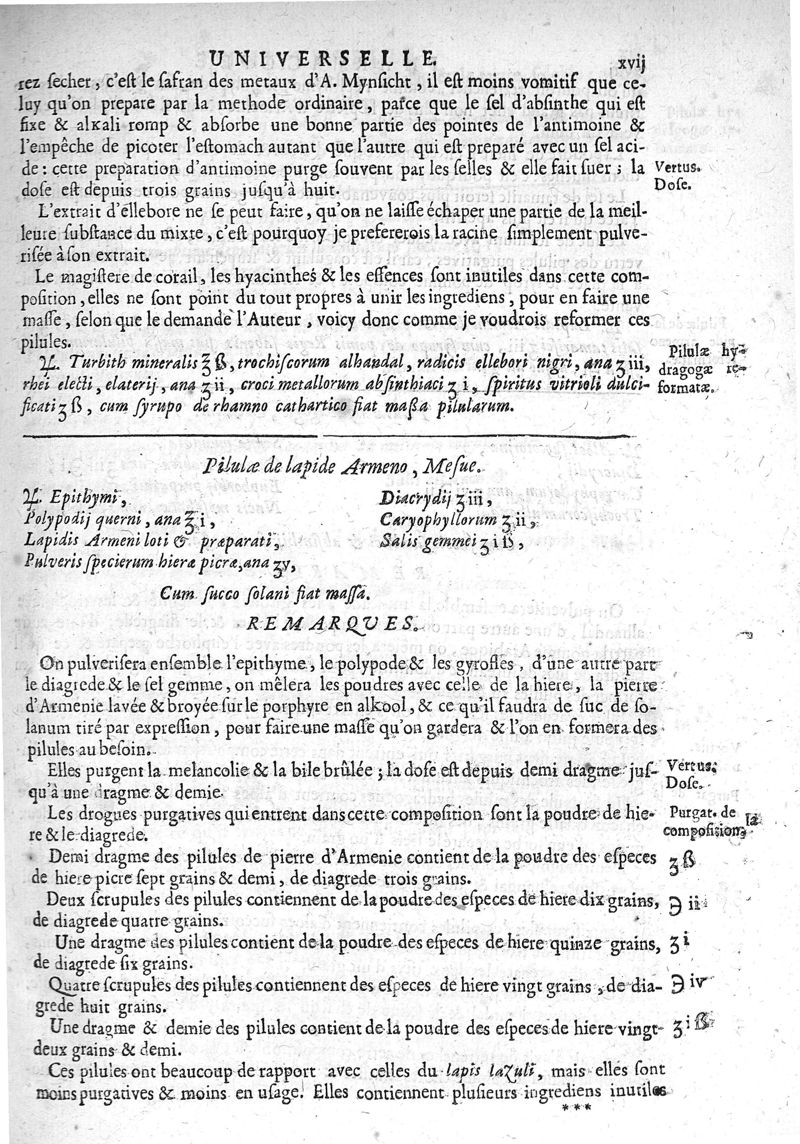 UNIVERSELLE. xvij
rez secher, c'est le safran des metaux d'A. Mynsicht, il est moins vomitif que ce-
luy qu'on prepare par la methode ordinaire, parce que le sel d'absinthe qui est
fixe & alkali romp & absorbe une bonne partie des pointes de l'antimoine &
l'empêche de picoter l'estomach autant que l'autre qui est preparé avec un sel aci-
de: cette preparation d'antimoine purge souvent par les selles & elle fait suer; la
dose est depuis trois grains jusqu'à huit.
Vertus.
Dose.
L'extrait d'éllebore ne se peut faire, qu'on ne laisse échaper une partie de la meil-
leure substance du mixte, c'est pourquoy je prefererois la racine simplement pulve-
risée à son extrait.
Le magistere de corail, les hyacinthes & les essences sont inutiles dans cette com-
position, elles ne sont point du tout propres à unir les ingrediens, pour en faire une
masse, selon que le demande l'Auteur, voicy donc comme je voudrois reformer ces
pilules.
♃. Turbith mineralis ℥ ß, trochiscorum alhandal, radicis ellebori nigri, ana ʒ iii,
rhei electi, elaterij, ana ʒ ii, croci metallorum absinthiaci ʒ i, spiritus vitrioli dulci-
ficati ʒ ß, cum syrupo de rhamno cathartico fiat massa pilularum.
Pilulæ hy-
dragogæ re-
formatæ.
Pilulæ de lapide Armeno, Mesue.
♃. Epithymi,
Polypodij querni, ana ℥ i,
Lapidis Armeni loti & præparati,
Pulveris specierum hieræ picræ, ana ʒv,
Diacrydij ʒ iii,
Caryophyllorum ʒ ii,
Salis gemmei ʒ i ß,
Cum succo solani fiat massa.
REMARQUES.
On pulverisera ensemble l'epithyme, le polypode & les gyrofles, d'une autre part
le diagrede & le sel gemme, on mêlera les poudres avec celle de la hiere, la pierre
d'Armenie lavée & broyée sur le porphyre en alkool, & ce qu'il faudra de suc de so-
lanum tiré par expression, pour faire une masse qu'on gardera & l'on en formera des
pilules au besoin.
Elles purgent la melancolie & la bile brûlée; la dose est depuis demi dragme jus-
qu'à une dragme & demie.
Vertus.
Dose.
Les drogues purgatives qui entrent dans cette composition sont la poudre de hie-
re & le diagrede.
Purgat. de la
composition.
Demi dragme des pilules de pierre d'Armenie contient de la poudre des especes
de hiere picre sept grains & demi, de diagrede trois grains.
ʒ ß
Deux scrupules des pilules contiennent de la poudre des especes de hiere dix grains,
de diagrede quatre grains.
℈ ii
Une dragme des pilules contient de la poudre des especes de hiere quinze grains,
de diagrede six grains.
ʒ i
Quatre scrupules des pilules contiennent des especes de hiere vingt grains, de dia-
grede huit grains.
℈ iv
Une dragme & demie des pilules contient de la poudre des especes de hiere vingt-
deux grains & demi.
ʒ i ß
Ces pilules ont beaucoup de rapport avec celles du lapis lazuli, mais elles sont
moins purgatives & moins en usage. Elles contiennent plusieurs ingrediens inutiles
***